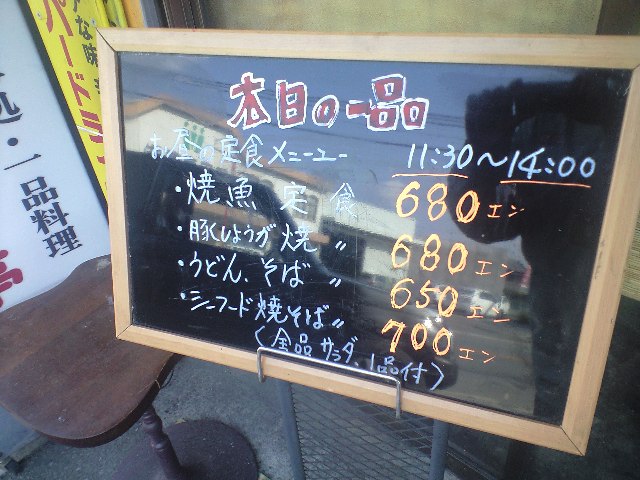 本日の一品
お昼の定食メニュー 11:30〜14:00
・焼魚定食 680エン
・豚しょうが焼〃 680エン
・うどん、そば〃 650エン
・シーフード焼そば〃 700エン
(全品サラダ、1品付)
・一品料理